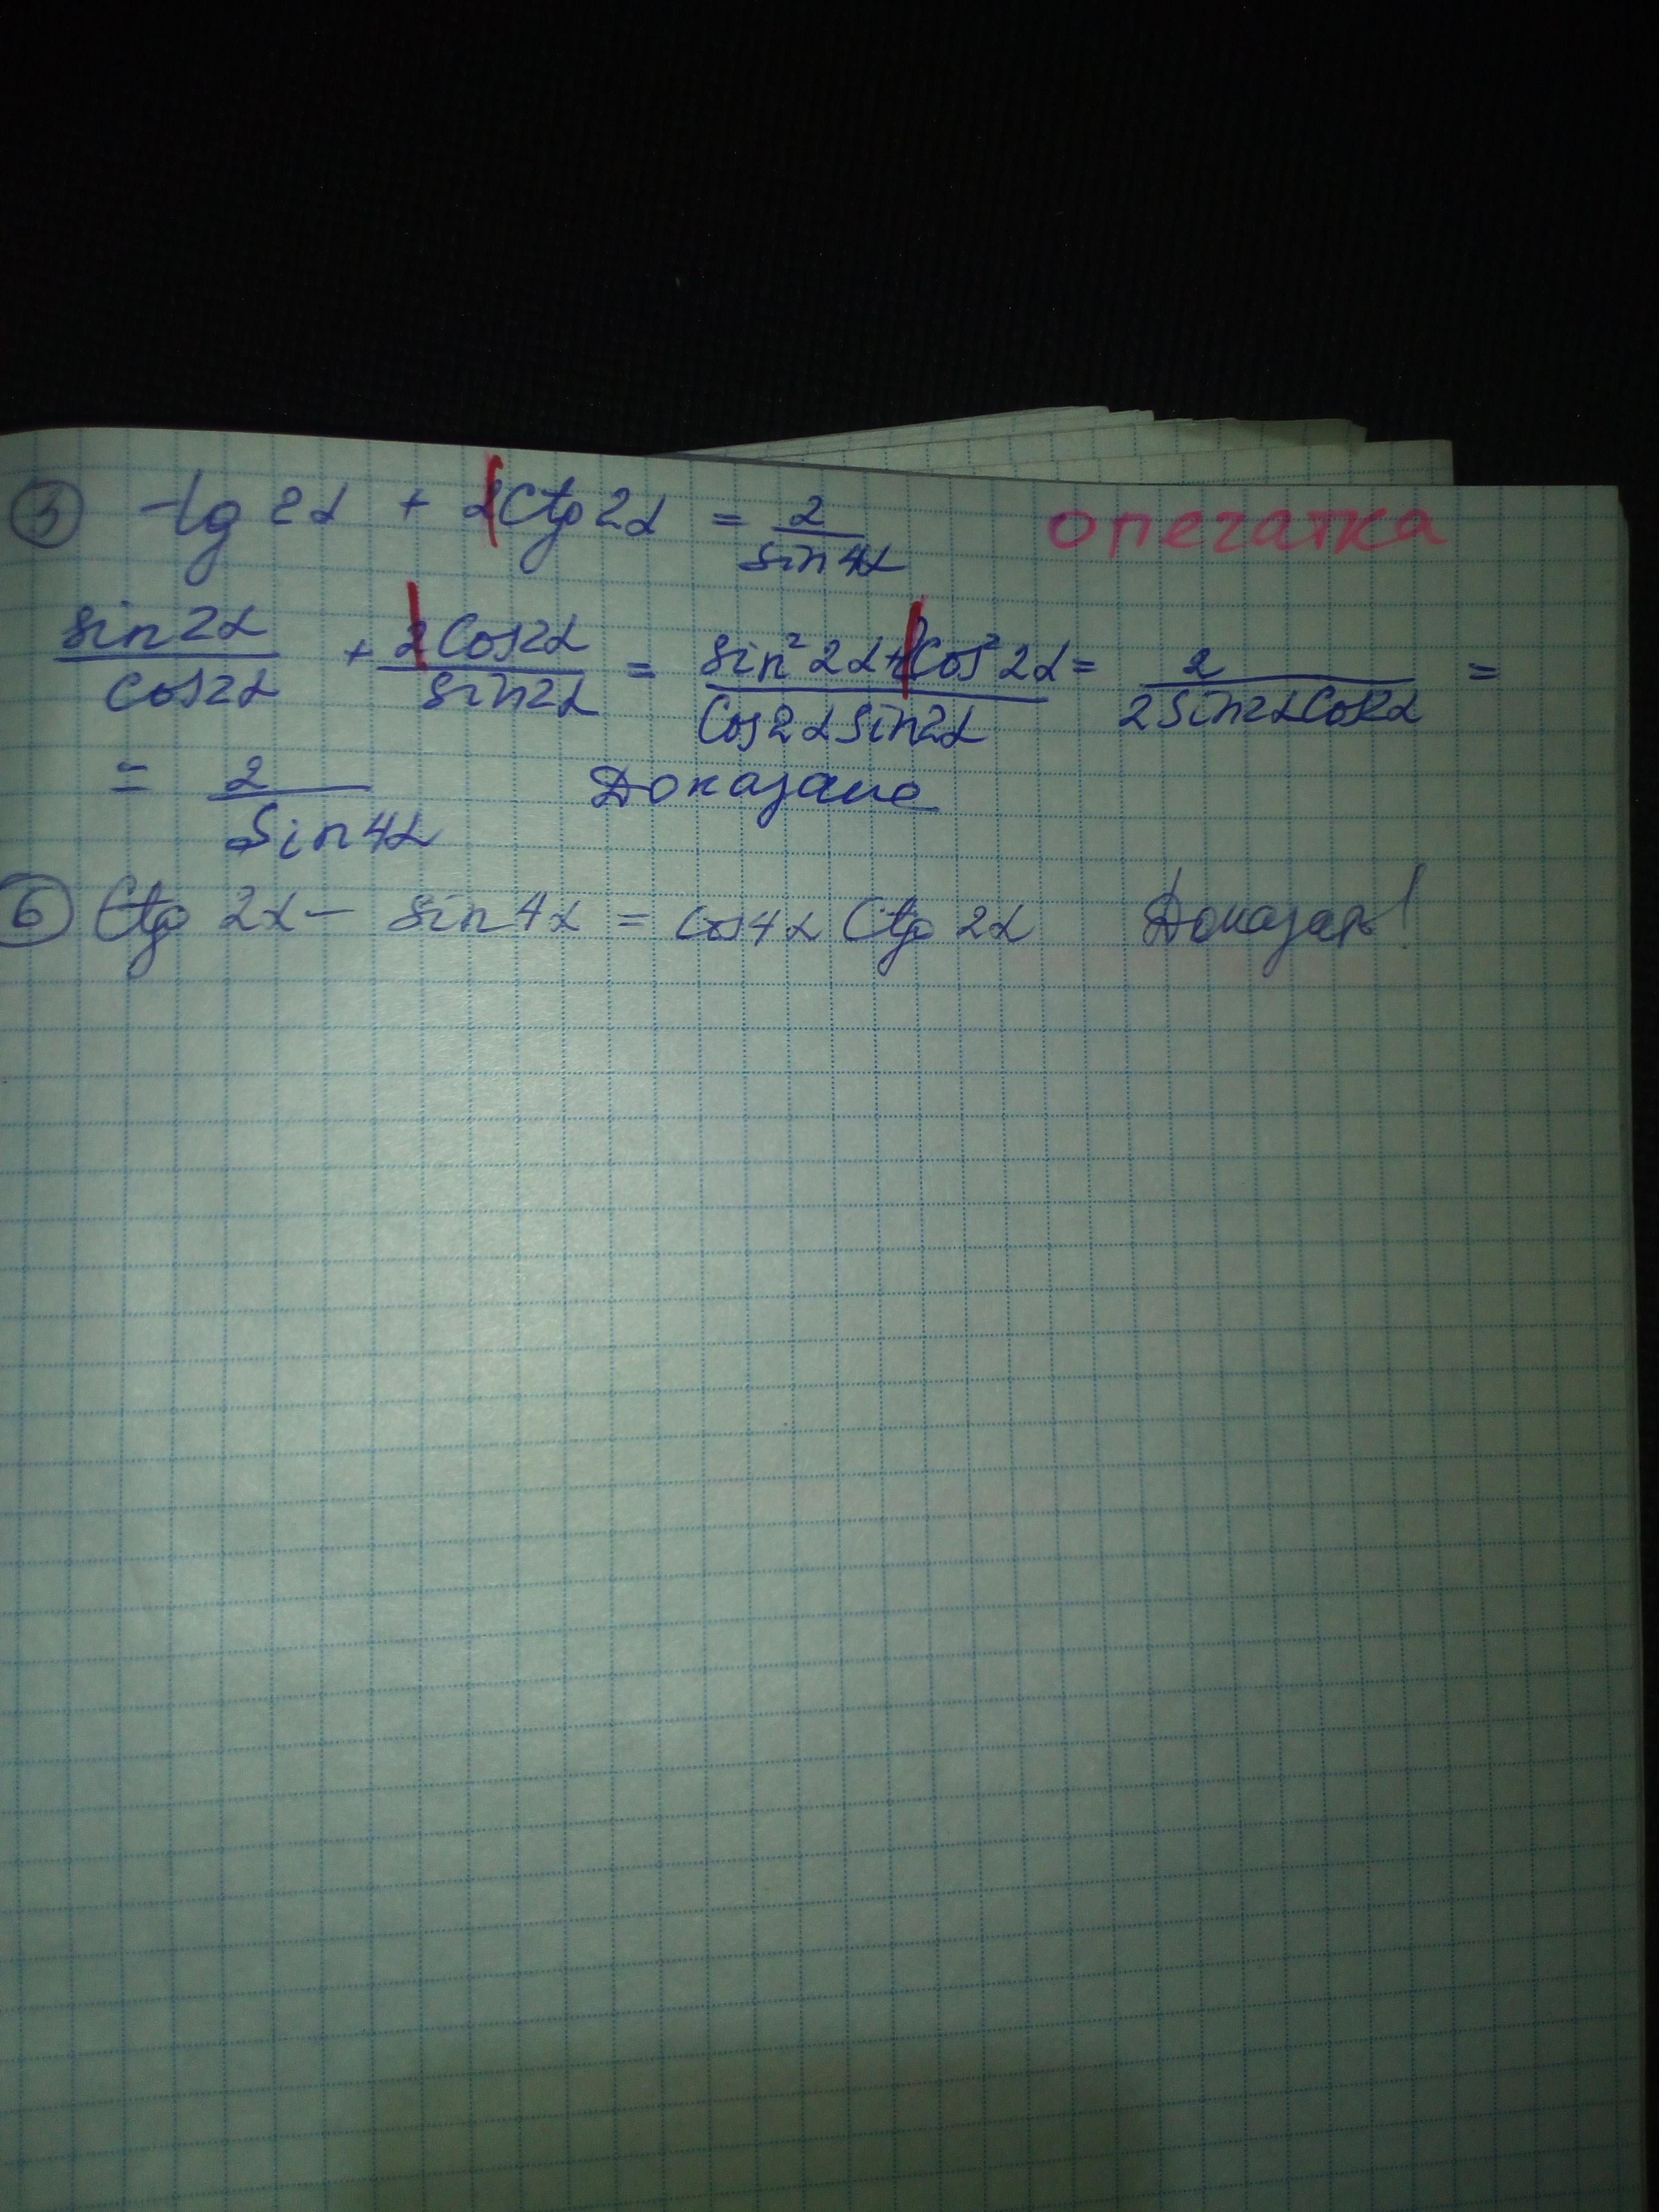 5 tg 2α + 2Ctg 2α = 2/sin 4α опечатка
sin 2α/cos 2α + 2 Cos 2α/sin 2α = sin² 2α + 2Cos² 2α/Cos 2α sin 2α = 2/2 sin 2α Cos 2α =
= 2/Sin 4α Доказано
6 Ctg 2α - sin 4α = cos 4α Ctg 2α Доказать!